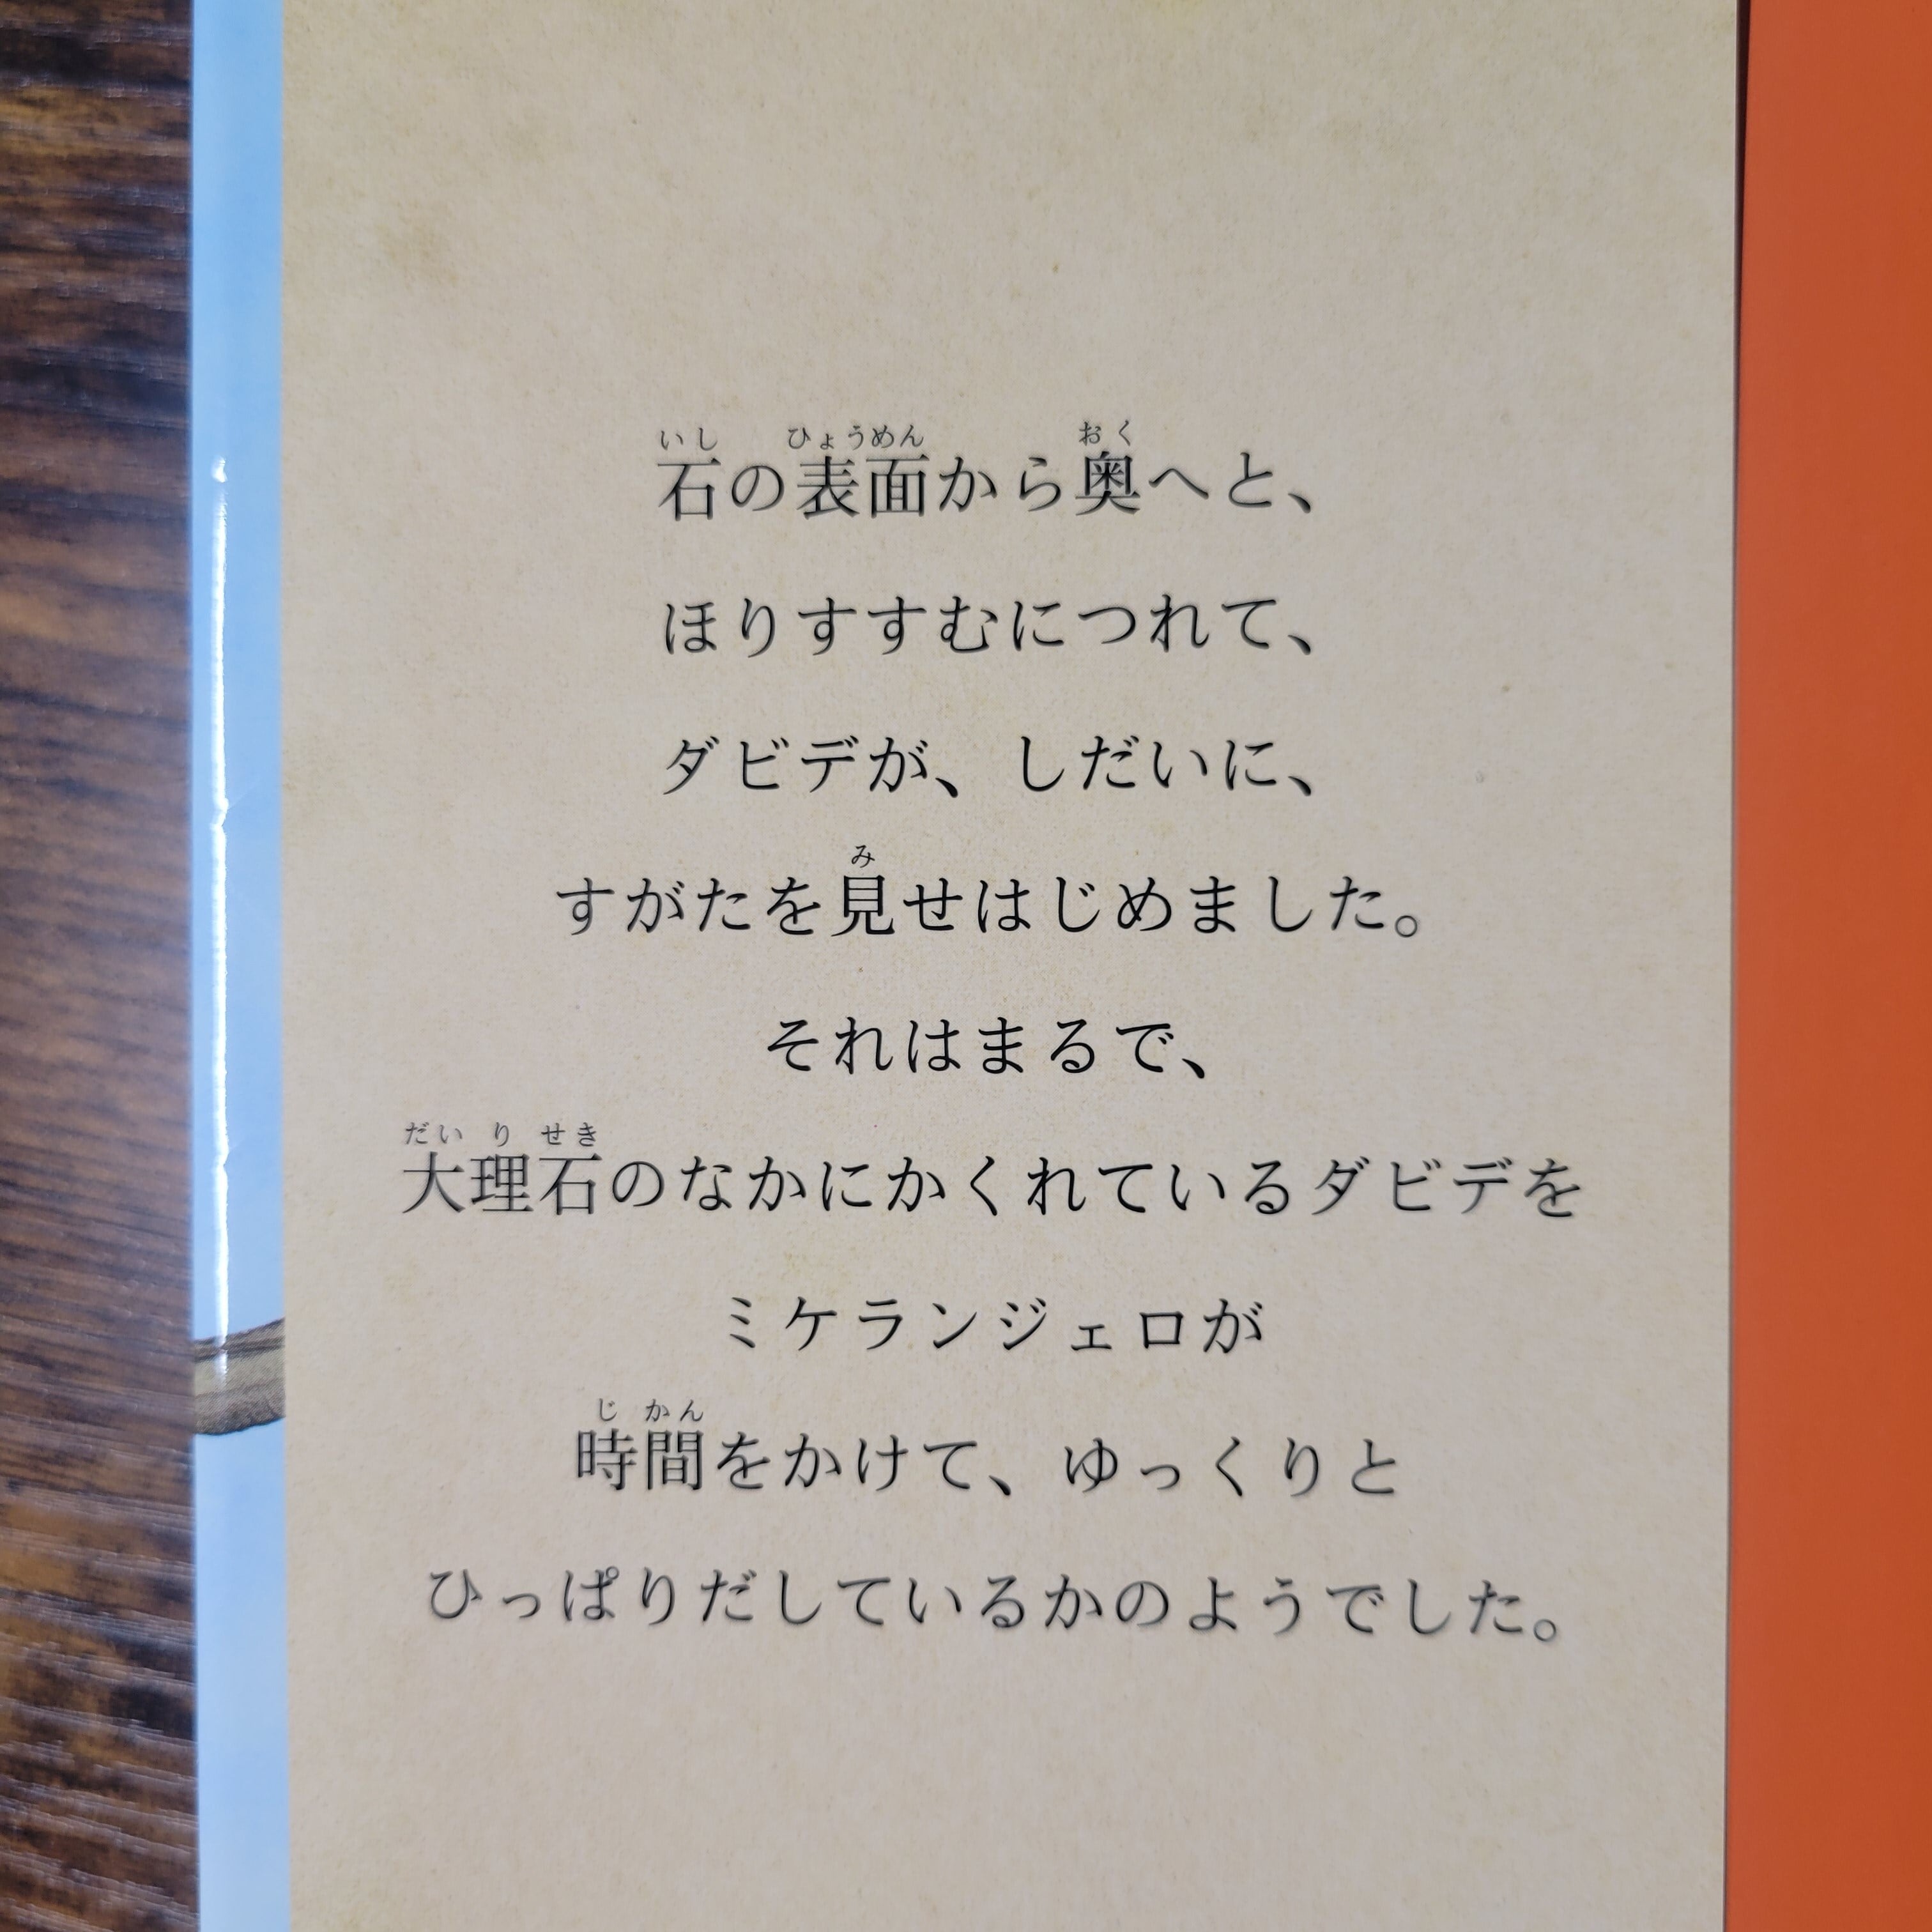 石の表面から奥へと、
ほりすすむにつれて、
ダビデが、しだいに、
すがたを見せはじめました。
それはまるで、
大理石のなかにかくれているダビデを
ミケランジェロが
時間をかけて、ゆっくりと
ひっぱりだしているかのようでした。